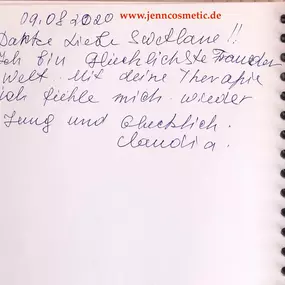 09.08.2020 www.jenncosmetic.de
Danke Liebe Swetlane!!
Ich bin Glücklichste Frau der
Welt. Mit deine Therapie
ich fühle mich wieder
Jung und Glücklich.
Claudia.